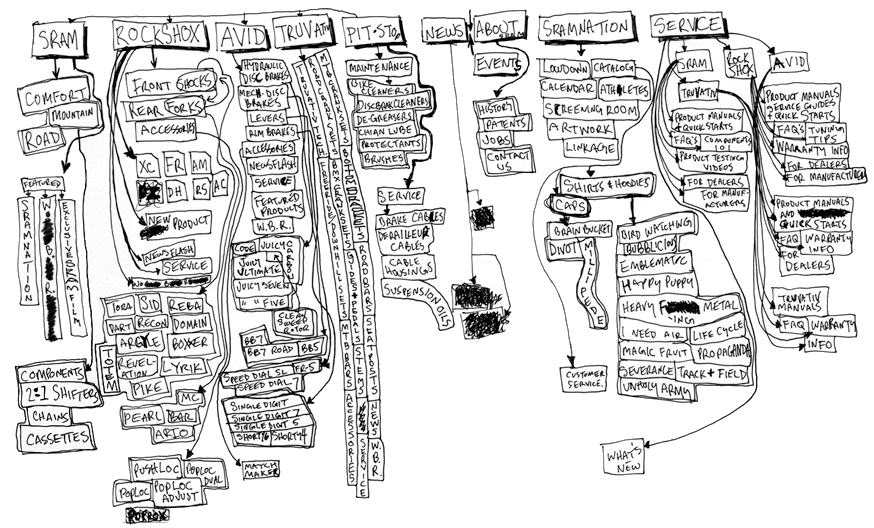 SRAM
ROCKSHOX
AVID
TRUVATIV
PIT-STOP
NEWS
ABOUT
SRAM
SRAMNATION
SERVICE
COMFORT
MOUNTAIN
ROAD
FEATURED
SRAMNATION
EXCLUSIVE SRAM FILM
COMPONENTS
2:1 SHIFTERS
CHAINS
CASSETTES
FRONT SHOCKS
REAR FORKS
ACCESSORIES
XC FR AM
DH RS AC
NEW PRODUCT
NEWSFLASH
SERVICE
TORA SID REBA
DART RECON DOMAIN
ARGYLE BOXXER
TOTEM
REVELATION LYRIK
PIKE
MC
PEARL BAR
ARIO
PUSHLOC POPLOC DUAL
POPLOC POPLOC ADJUST
HYDRAULIC DISC BRAKES
MECH. DISC BRAKES
LEVERS
RIM BRAKES
ACCESSORIES
NEWSFLASH
SERVICE
FEATURED PRODUCTS
W.B.R.
CODE JUICY CARBON
JUICY ULTIMATE
JUICY SEVEN
" " FIVE
CLEAN SWEEP ROTOR
BB7
BB7 ROAD BB5
SPEED DIAL SL FR-5
SPEED DIAL 7
SINGLE DIGIT
SINGLE DIGIT 7
SINGLE DIGIT 5
SHORTY 6 SHORTY 4
MATCH MAKER
MTB CRANKSETS
ROAD CRANKSETS
BMX CRANKSETS
GUIDES + PEDALS
STEMS
SERVICE
MTB BARS
ACCESSORIES
ROAD BARS
SEATPOSTS
NEWS
W.B.R.
MAINTENANCE
BIKE CLEANERS
DISCBRAKE CLEANERS
DE-GREASERS
CHIAN LUBE
PROTECTANTS
BRUSHES
SERVICE
BRAKE CABLES
DERAILLEUR CABLES
CABLE HOUSINGS
SUSPENSION OILS
EVENTS
HISTORY
PATENTS
JOBS
CONTACT US
LOWDOWN CATALOG
CALENDAR ATHLETES
SCREENING ROOM
ARTWORK
LINKAGE
SHIRTS & HOODIES
CAPS
BRAIN BUCKET
DIVOT
MILLIPEDE
CUSTOMER SERVICE
BIRD WATCHING
RUBBLICIOUS
EMBLEMATEC
HAPPY PUPPY
HEAVY METAL
I NEED AIR LIFE CYCLE
MAGIC FRUIT PROPAGANDA
SEVERABLE TRACK + FIELD
UNHOLY ARMY
WHAT'S NEW
SRAM
ROCK SHOX
AVID
TRUVATIV
PRODUCT MANUALS & QUICKSTARTS
FAQ'S COMPONENTS 101
PRODUCT TESTING VIDEOS
FOR DEALERS
FOR MANUFACTURERS
PRODUCT MANUALS
SERVICE GUIDES
+ QUICK STARTS
FAQ'S TUNING TIPS
WARRANTY INFO
FOR DEALERS
FOR MANUFACTURERS
PRODUCT MANUALS
AND
QUICK STARTS
FAQ WARRANTY INFO
FOR DEALERS
TRUVATIV MANUALS
FAQ WARRANTY
INFO